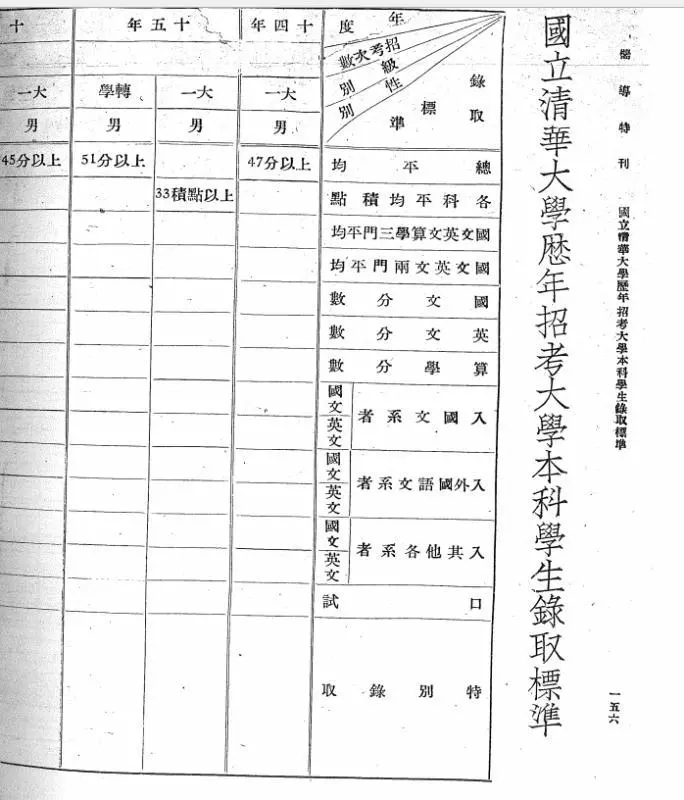 響導特刊
國立清華大學歷年招考大學本科學生錄取標準
一五六
國立清華大學歷年招考大學本科學生錄取標準
年度
招考次數
級別
性別
錄取標準
總平均
各科平均積點
國文英文算學三門平均
國文英文兩門平均
國文分數
英文分數
算學分數
入國文系者
國文
英文
入外國語文系者
國文
英文
入其他各系者
國文
英文
口試
特別錄取
十四年
大一
男
47分以上
十五年
大一
男
33積點以上
轉學
男
51分以上
十
大一
男
45分以上